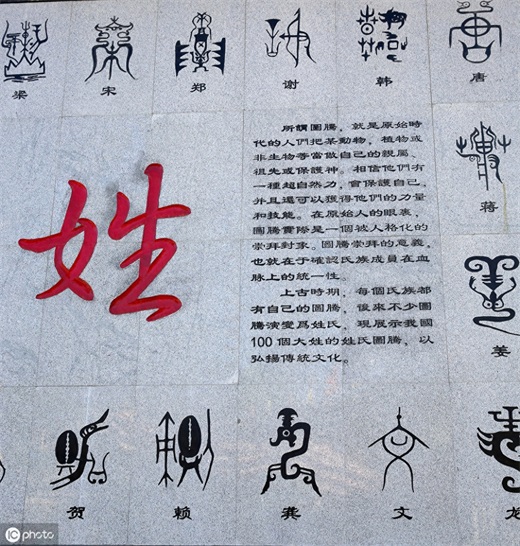 梁
宋
郑
谢
韩
唐
蒋
姜
姓
所謂圖騰，就是原始時
代的人們把某動物，植物或
非生物等當做自己的親屬、
祖先或保護神。相信他們有
一種超自然力，會保護自己，
并且還可以獲得他們的力量
和技能。在原始人的眼裏，
圖騰實際是一個被人格化的
崇拜對象。圖騰崇拜的意義，
也就在于確認氏族成員在血
脉上的統一性。
上古時期，每個氏族都
有自己的圖騰，後來不少圖
騰演變爲姓氏，現展示我國
100個大姓的姓氏圖騰，以
弘揚傳統文化。
贺
赖
龚
文
龙
iC photo